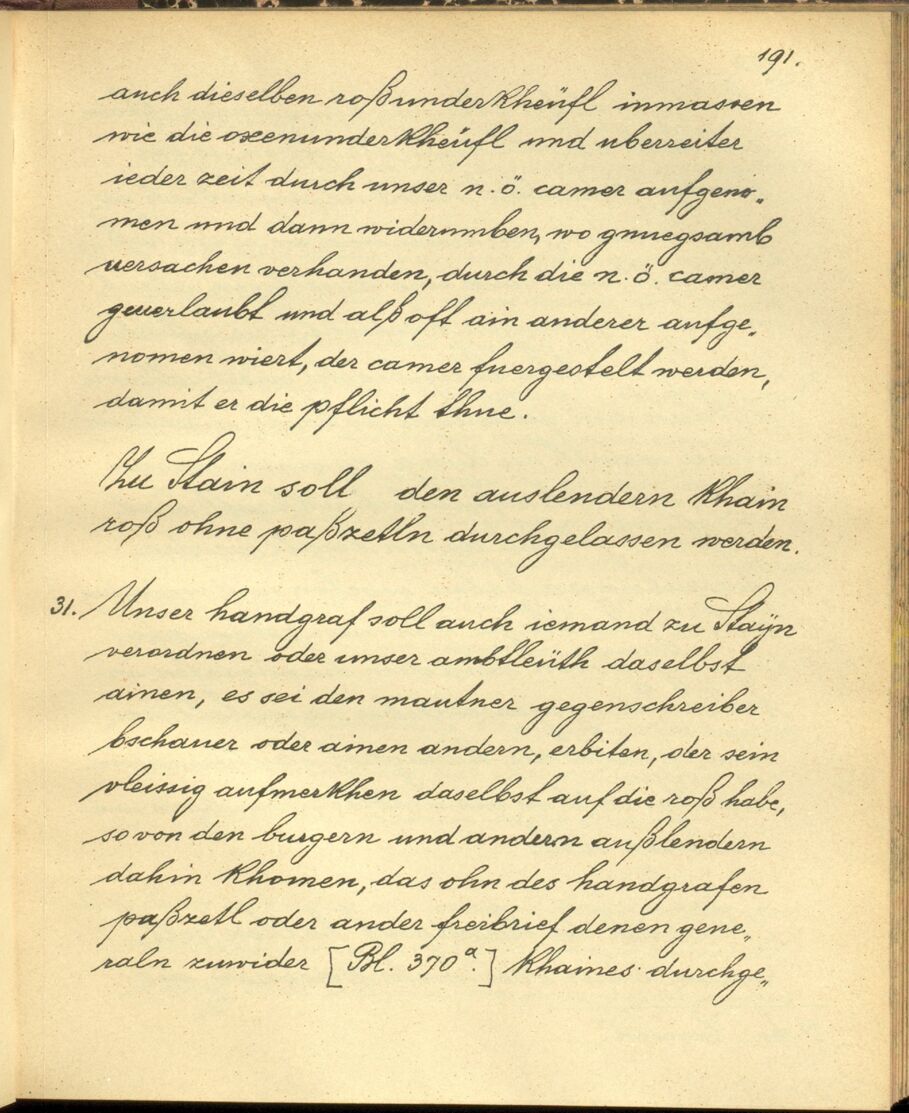 191.
auch dieselben roßunderkheüfl inmassen
wie die oxenunderkheüfl und uberreiter
ieder zeit durch unser n. ö. camer aufgeno„
men und dann widerumben, wo gnuegsamb
uersachen verhanden, durch die n. ö. camer
geuerlaubt und alß oft ain anderer aufge„
nomen wiert, der camer fuergestelt werden,
damit er die pflicht thue.
Zu Stain soll den auslendern khain
roß ohne paßzetln durchgelassen werden.
31. Unser handgraf soll auch iemand zu Staÿn
verordnen oder unser ambtleüth daselbst
ainen, es sei den mautner gegenschreiber
bschauer oder ainen andern, erbiten, der sein
vleissig aufmerkhen daselbst auf die roß habe,
so von den burgern und andern außlendern
dahin khomen, das ohn des handgrafen
paßzetl oder ander freibrief denen gene„
raln zuwider [Bl. 370a.] khaines durchge„